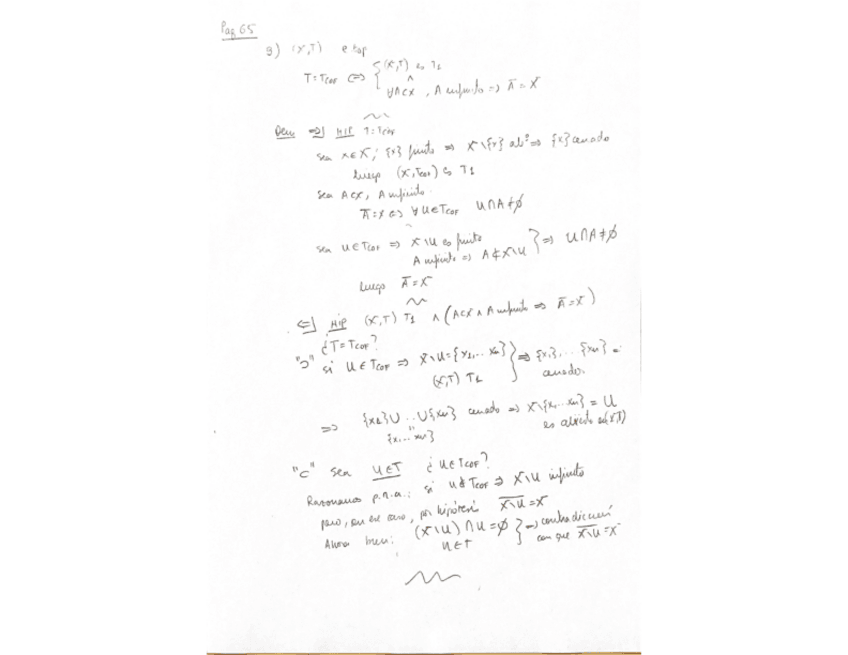 Pag 65
9) (X,T) e.top
T=T_COF ⇔ { (X,T) es T1
∧
∀A⊂X, A infinito ⇒ Ā = X
Dem ⇒] HIP T=T_COF
sea x∈X; {x} finito ⇒ X\{x} abto ⇒ {x} cerrado
luego (X,T_COF) es T1
Sea A⊂X, A infinito.
Ā=X ⇔ ∀U∈T_COF U∩A≠∅
sea U∈T_COF ⇒ X\U es finito
A infinito ⇒ A⊄X\U } ⇒ U∩A≠∅
luego Ā=X
⇐] HIP (X,T) T1 ∧ (A⊂X ∧ A infinito ⇒ Ā=X)
¿T=T_COF?
"⊃" si U∈T_COF ⇒ X\U={x1,...xn} } ⇒ {x1},...{xn}
(X,T) T1 cerrados.
⇒ {x1}∪...∪{xn} cerrado ⇒ X\{x1...xn} = U
{x1...xn} es abierto en (X,T)
"⊂" sea U∈T ¿U∈T_COF?
Razonamos p.r.a.: si U∉T_COF ⇒ X\U infinito
pero, en ese caso, por hipótesis X\U = X
Ahora bien: (X\U)∩U=∅ } → contradicción
U∈T con que X\U=X